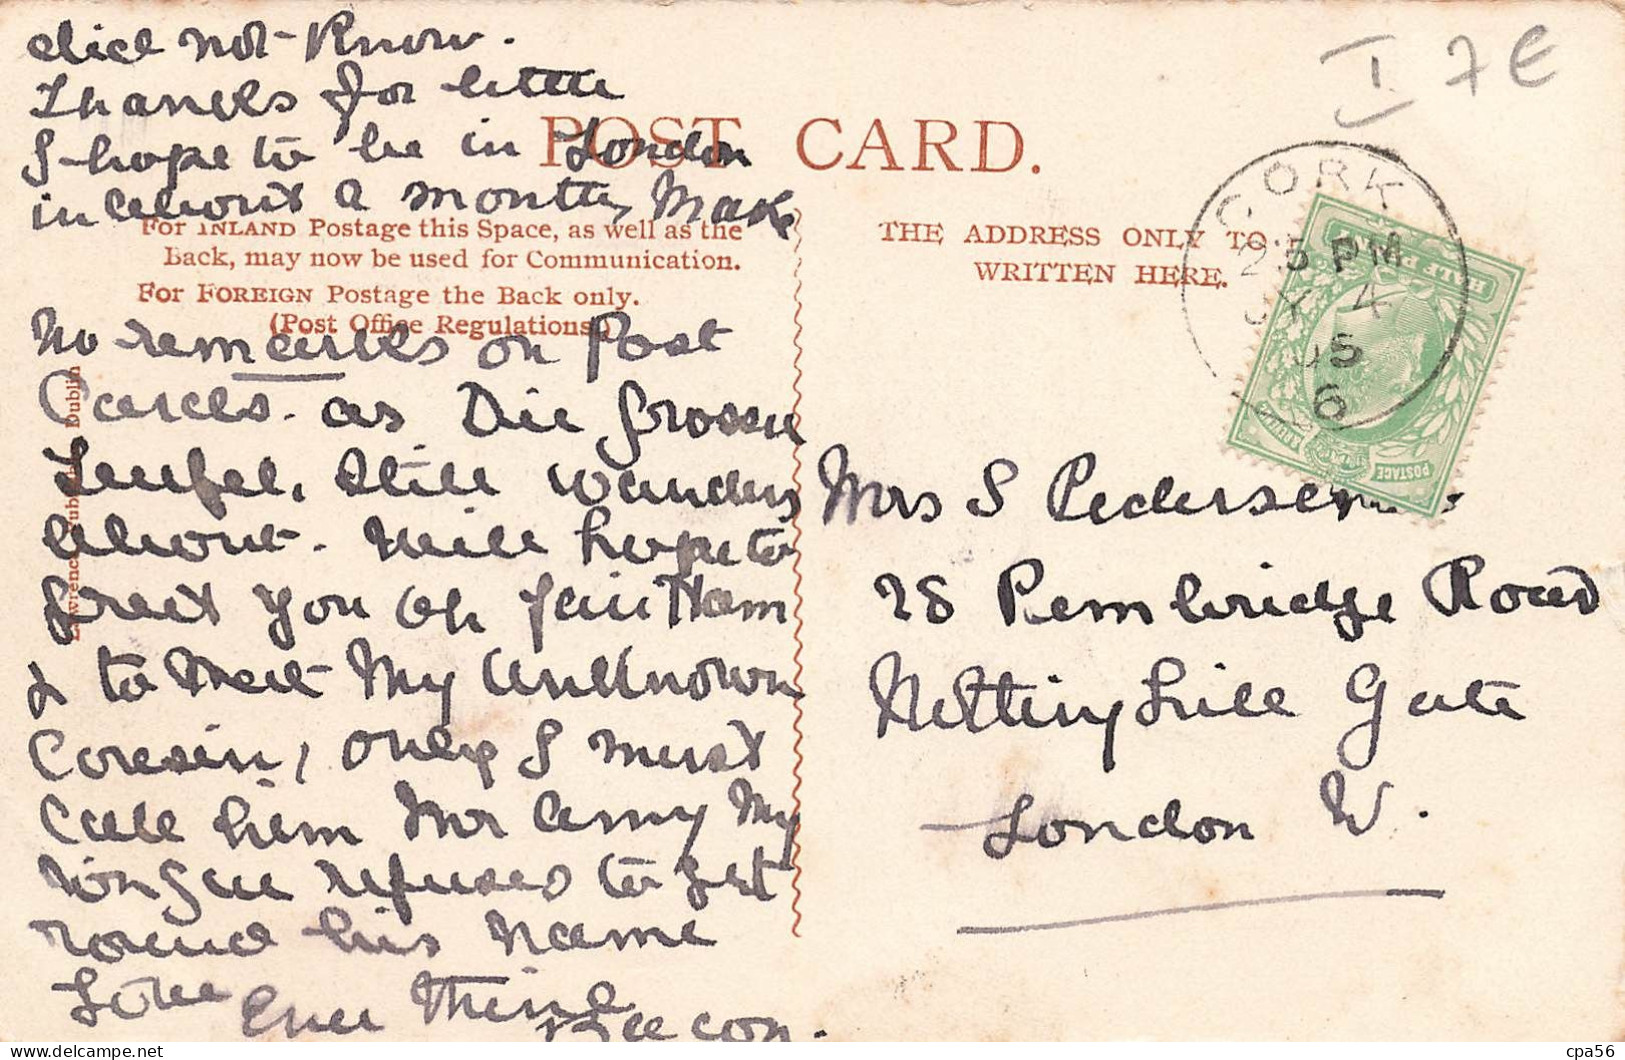 did not Know.
Thanks for letter
I hope to be in London
in about a month, Make
No remarks on Post
Cards. as Die Grossen
Teufel. Still wanders
about. Will hope to
greet you at
& to Meet My Unknown
Cousin, only I must
Call him Mr Amy My
Tongue refuses to get
round his Name
Love Ever Thine
POST CARD.
For INLAND Postage this Space, as well as the
Back, may now be used for Communication.
For FOREIGN Postage the Back only.
(Post Office Regulations.)
Lawrence, Publisher, Dublin
THE ADDRESS ONLY TO
WRITTEN HERE.
I 7 E
CORK
2.5 PM
4
05
6
HALF PENNY
POSTAGE
Mrs S Pedersen
28 Pembridge Road
Notting Hill Gate
London W.
delcampe.net
cpa56